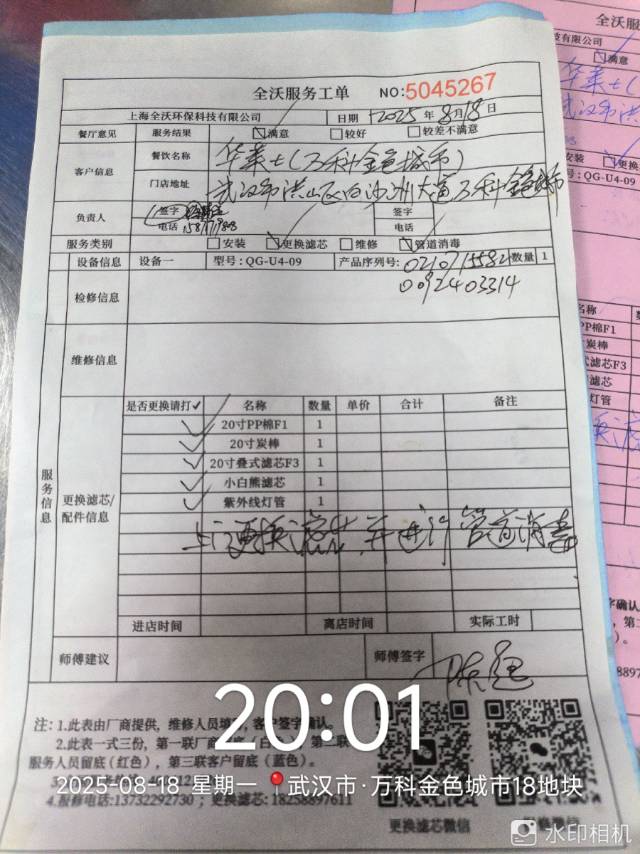 全沃服务工单 NO:5045267
上海全沃环保科技有限公司 日期 2025 年 8月18日
餐厅意见 服务结果 满意 较好 较差不满意
客户信息 餐饮名称 华莱士(万科金色城市)
门店地址 武汉市洪山区白沙洲大道万科金色城市
负责人 签字 签字
电话 电话
服务类别 安装 更换滤芯 维修 管道消毒
设备信息 设备一 型号:QG-U4-09 产品序列号: 数量 1
0092403314
检修信息
维修信息
服务信息
更换滤芯/配件信息
是否更换请打✓ 名称 数量 单价 合计 备注
✓ 20寸PP棉F1 1
✓ 20寸炭棒 1
✓ 20寸叠式滤芯F3 1
✓ 小白熊滤芯 1
✓ 紫外线灯管 1
上门更换滤芯,并进行管道消毒
进店时间 离店时间 实际工时
师傅建议 师傅签字
20:01
注: 1.此表由厂商提供,维修人员填写,客户签字确认。
2.此表一式三份,第一联厂商
服务人员留底(红色),第三联客户留底(蓝色)。
2025-08-18 星期一 武汉市·万科金色城市18地块
4.报修电话:13732292730 ; 更换滤芯: 18258897611
更换滤芯微信
水印相机
全沃服
技有限公司
满意
安装
:QG-U4-09
名称
棉F1
炭棒
滤芯F3
滤芯
灯管